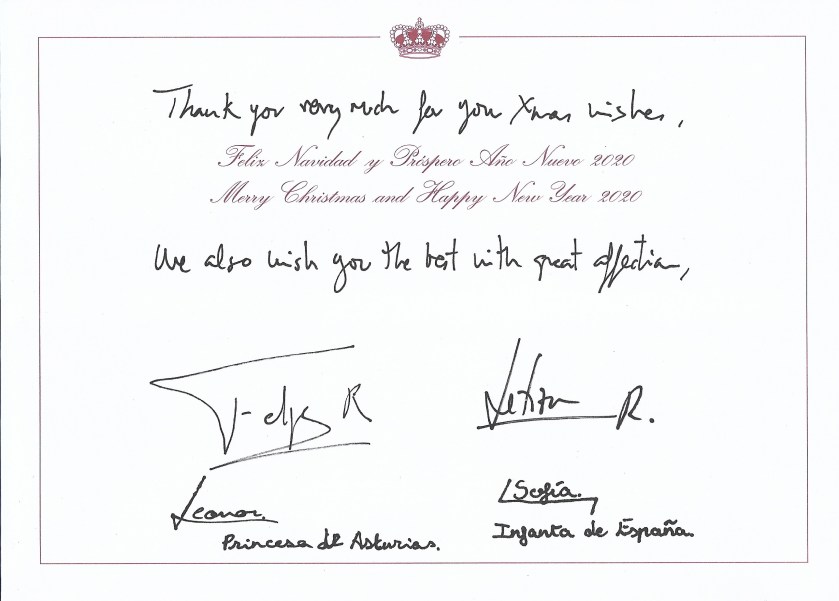 Thank you very much for you Xmas wishes,
Feliz Navidad y Próspero Año Nuevo 2020
Merry Christmas and Happy New Year 2020
We also wish you the best with great affection,
Felipe R
Letizia R.
Leonor.
Sofía.
Princesa de Asturias.
Infanta de España.